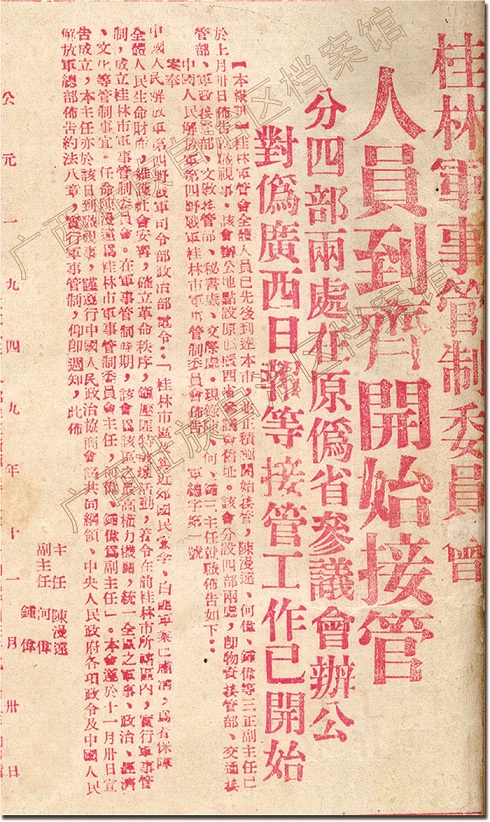 桂林軍事管制委員會
人員到齊開始接管
分四部兩處在原僞省參議會辦公
對僞廣西日報等接管工作已開始
【本報訊】桂林軍管會全體人員已先後到達本市，並正積極開始接管，陳漫遠、何偉、鍾偉等三正副主任已
於上月卅日佈告就職視事。該會辦公地點設原僞廣西省參議會舊址。該會分設四部兩處，卽物資接管部、交通接
管部、軍政接管部、文教接管部、秘書處、交際處。現錄陳、何、鍾三主任就職佈告如下：
中國人民解放軍第四野戰軍桂林市軍事管制委員會佈告　軍總字第一號
案奉
中國人民解放軍第四野戰軍司令部政治部電令：「桂林市區曁近郊國民黨李、白匪軍業已肅淸，爲着保障
全體人民生命財產，維護社會安寧，確立革命秩序，鎮壓反動破壞活動，着令在前桂林市所轄區內，實行軍事管
制，成立桂林市軍事管制委員會。在軍事管制時期，該會爲該區之最高權力機關，統一全區之軍事、政治、經濟
、文化等管制事宜。任命陳漫遠爲桂林市軍事管制委員會主任，何偉、鍾偉爲副主任」。本會遂於十一月卅日宣
告成立，本主任亦於該日到職視事，謹遵行中國人民政治協商會議共同綱領、中央人民政府各項政令及中國人民
解放軍總部佈告約法八章，實行軍事管制，仰卽週知，此佈
主任　陳漫遠
副主任　何偉
鍾偉
公元一九四九年十一月卅日
广西壮族自治区档案馆
广西壮族自治区档案馆